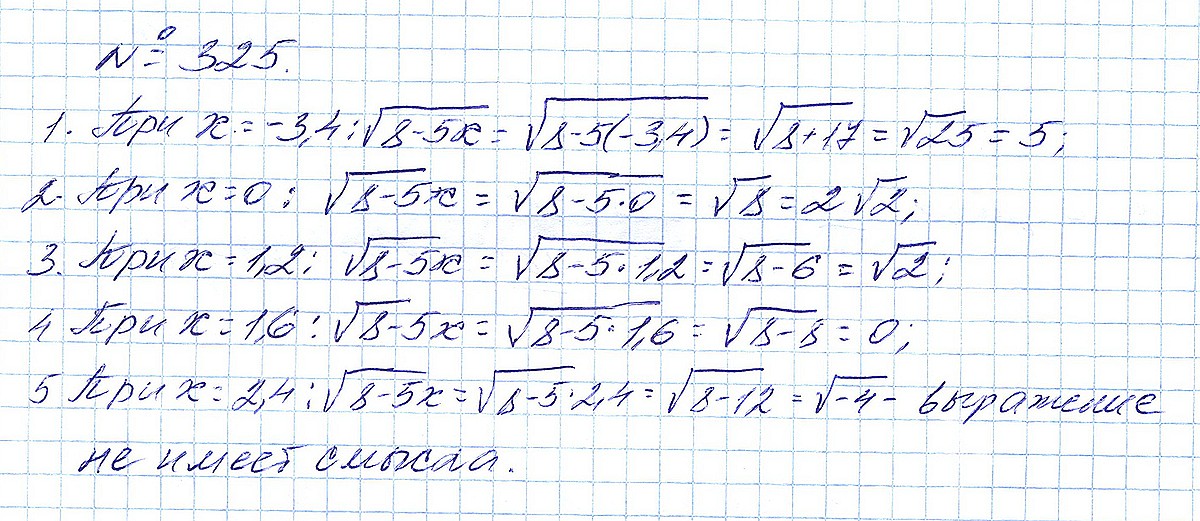 № 325.
1. При x = -3,4 : √8-5x = √8-5(-3,4) = √8+17 = √25 = 5;
2. При x = 0 : √8-5x = √8-5·0 = √8 = 2√2;
3. При x = 1,2 : √8-5x = √8-5·1,2 = √8-6 = √2;
4 При x = 1,6 : √8-5x = √8-5·1,6 = √8-8 = 0;
5 При x = 2,4 : √8-5x = √8-5·2,4 = √8-12 = √-4 - выражение
не имеет смысла.